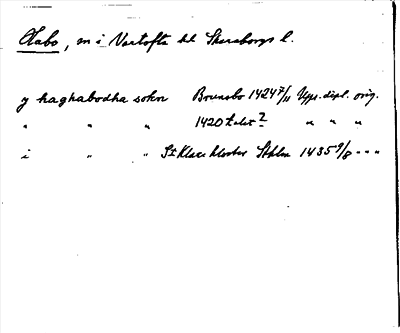 Åsabo, sn i Vartofta hd Skaraborgs l.
y haghabodha sokn Brunsbo 1424 7/11 Upps. dipl. orig.
" " " 1420 talet? " " "
i " " St Klara kloster Sthlm 1435 9/8 " " "